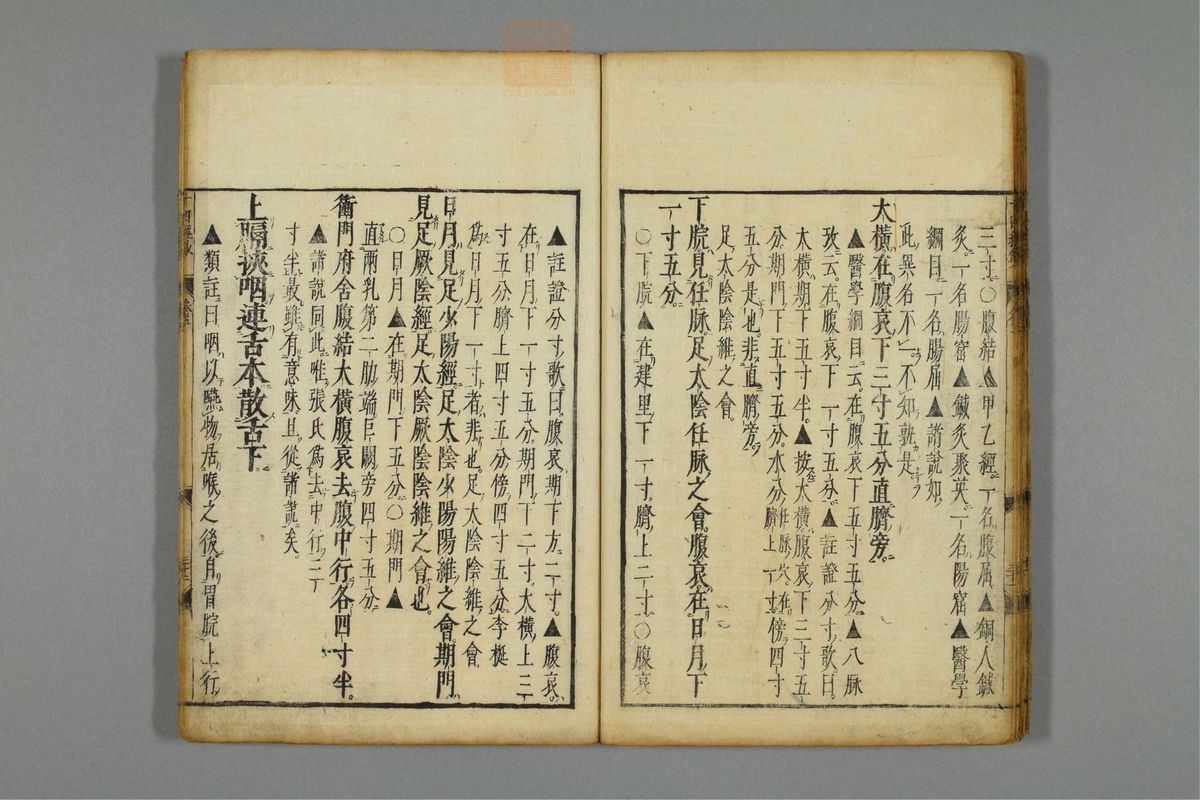 三寸○腹結▲甲乙經一名腹屈▲銅人鍼
灸一名腸窟▲鍼灸聚英一名陽窟▲醫學
綱目一名腸屈▲諸說如
此異名不一不知孰是
大橫在腹哀下三寸五分直臍旁
▲醫學綱目云在腹哀下五寸五分▲八脉
攷云在腹哀下一寸五分▲註證分寸歌曰
大橫期下五寸半▲按大橫腹哀下三寸五
分期門下五寸五分水分任脉穴在臍上一寸傍四寸
五分是也非直臍旁
足太陰陰維之會
下脘見任脉足太陰任脉之會腹哀在日月下
一寸五分
○下脘▲在建里下一寸臍上二寸○腹哀
▲註證分寸歌曰腹哀期下方二寸▲腹哀
在日月下一寸五分期門下二寸大橫上三
寸五分臍上四寸五分傍四寸五分李梴
為日月下一寸者非也足太陰陰維之會
日月見足少陽經足太陰少陽陽維之會期門
見足厥陰經足太陰厥陰陰維之會也
○日月▲在期門下五分○期門▲
直兩乳第二肋端巨闕旁四寸五分
衝門府舍腹結大橫腹哀去腹中行各四寸半
▲諸說同此唯張氏為去中行三
寸半最雖有意味且從諸說矣
上膈挾咽連舌本散舌下
▲類註曰咽以嚥物居喉之後自胃脘上行